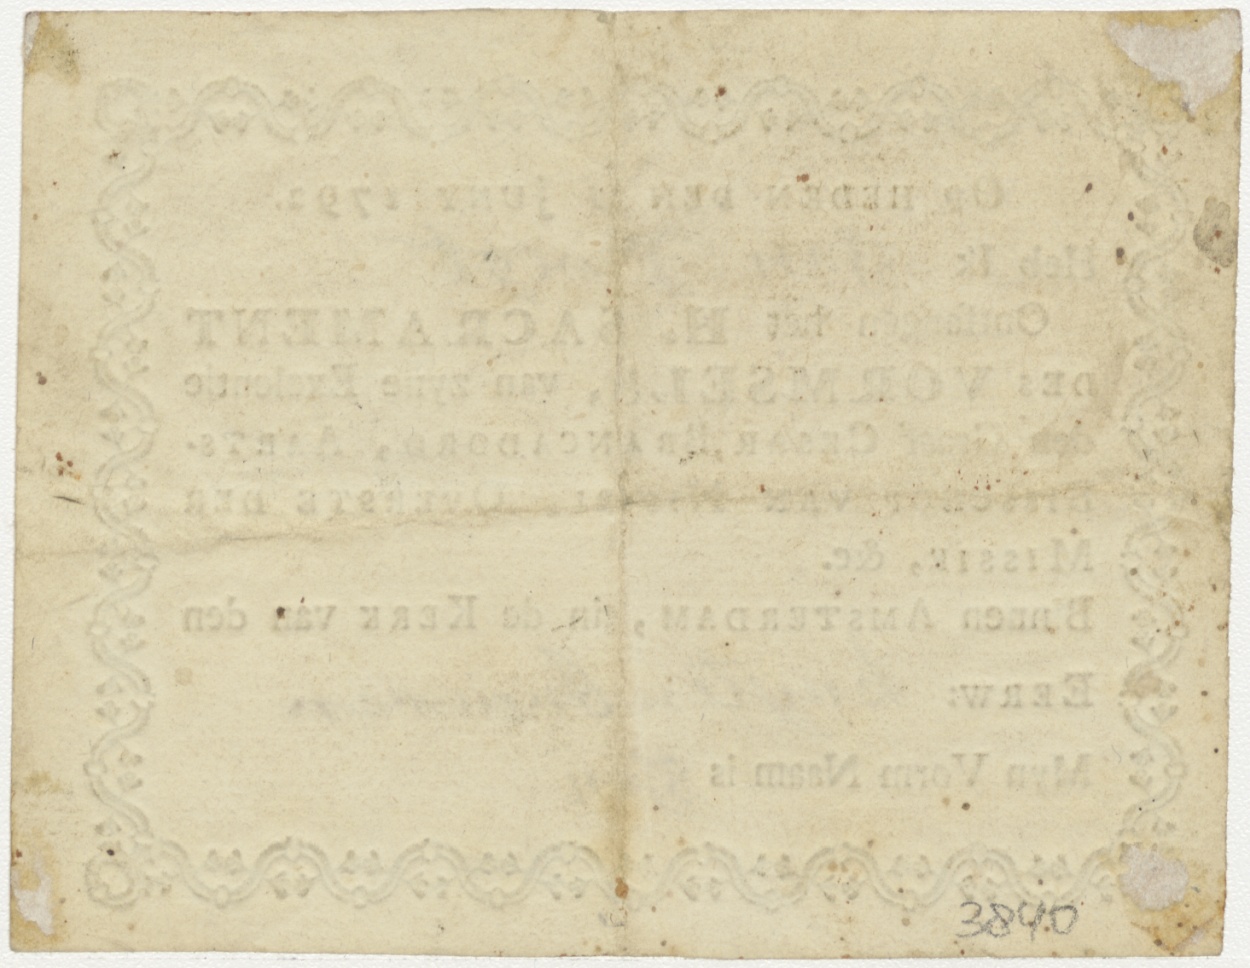 OP HEDEN DEN JUNY 1792.
Heb Ik
Ontfangen het H. SACRAMENT
DES VORMSELS, van zyne Exelentie
den Heer CESAR BRANCADORO, AARTS-
BISSCHOP VAN OVERSTE DER
MISSIE, &c.
Binnen AMSTERDAM, in de KERK van den
EERW:
Myn Vorm Naam is
3840